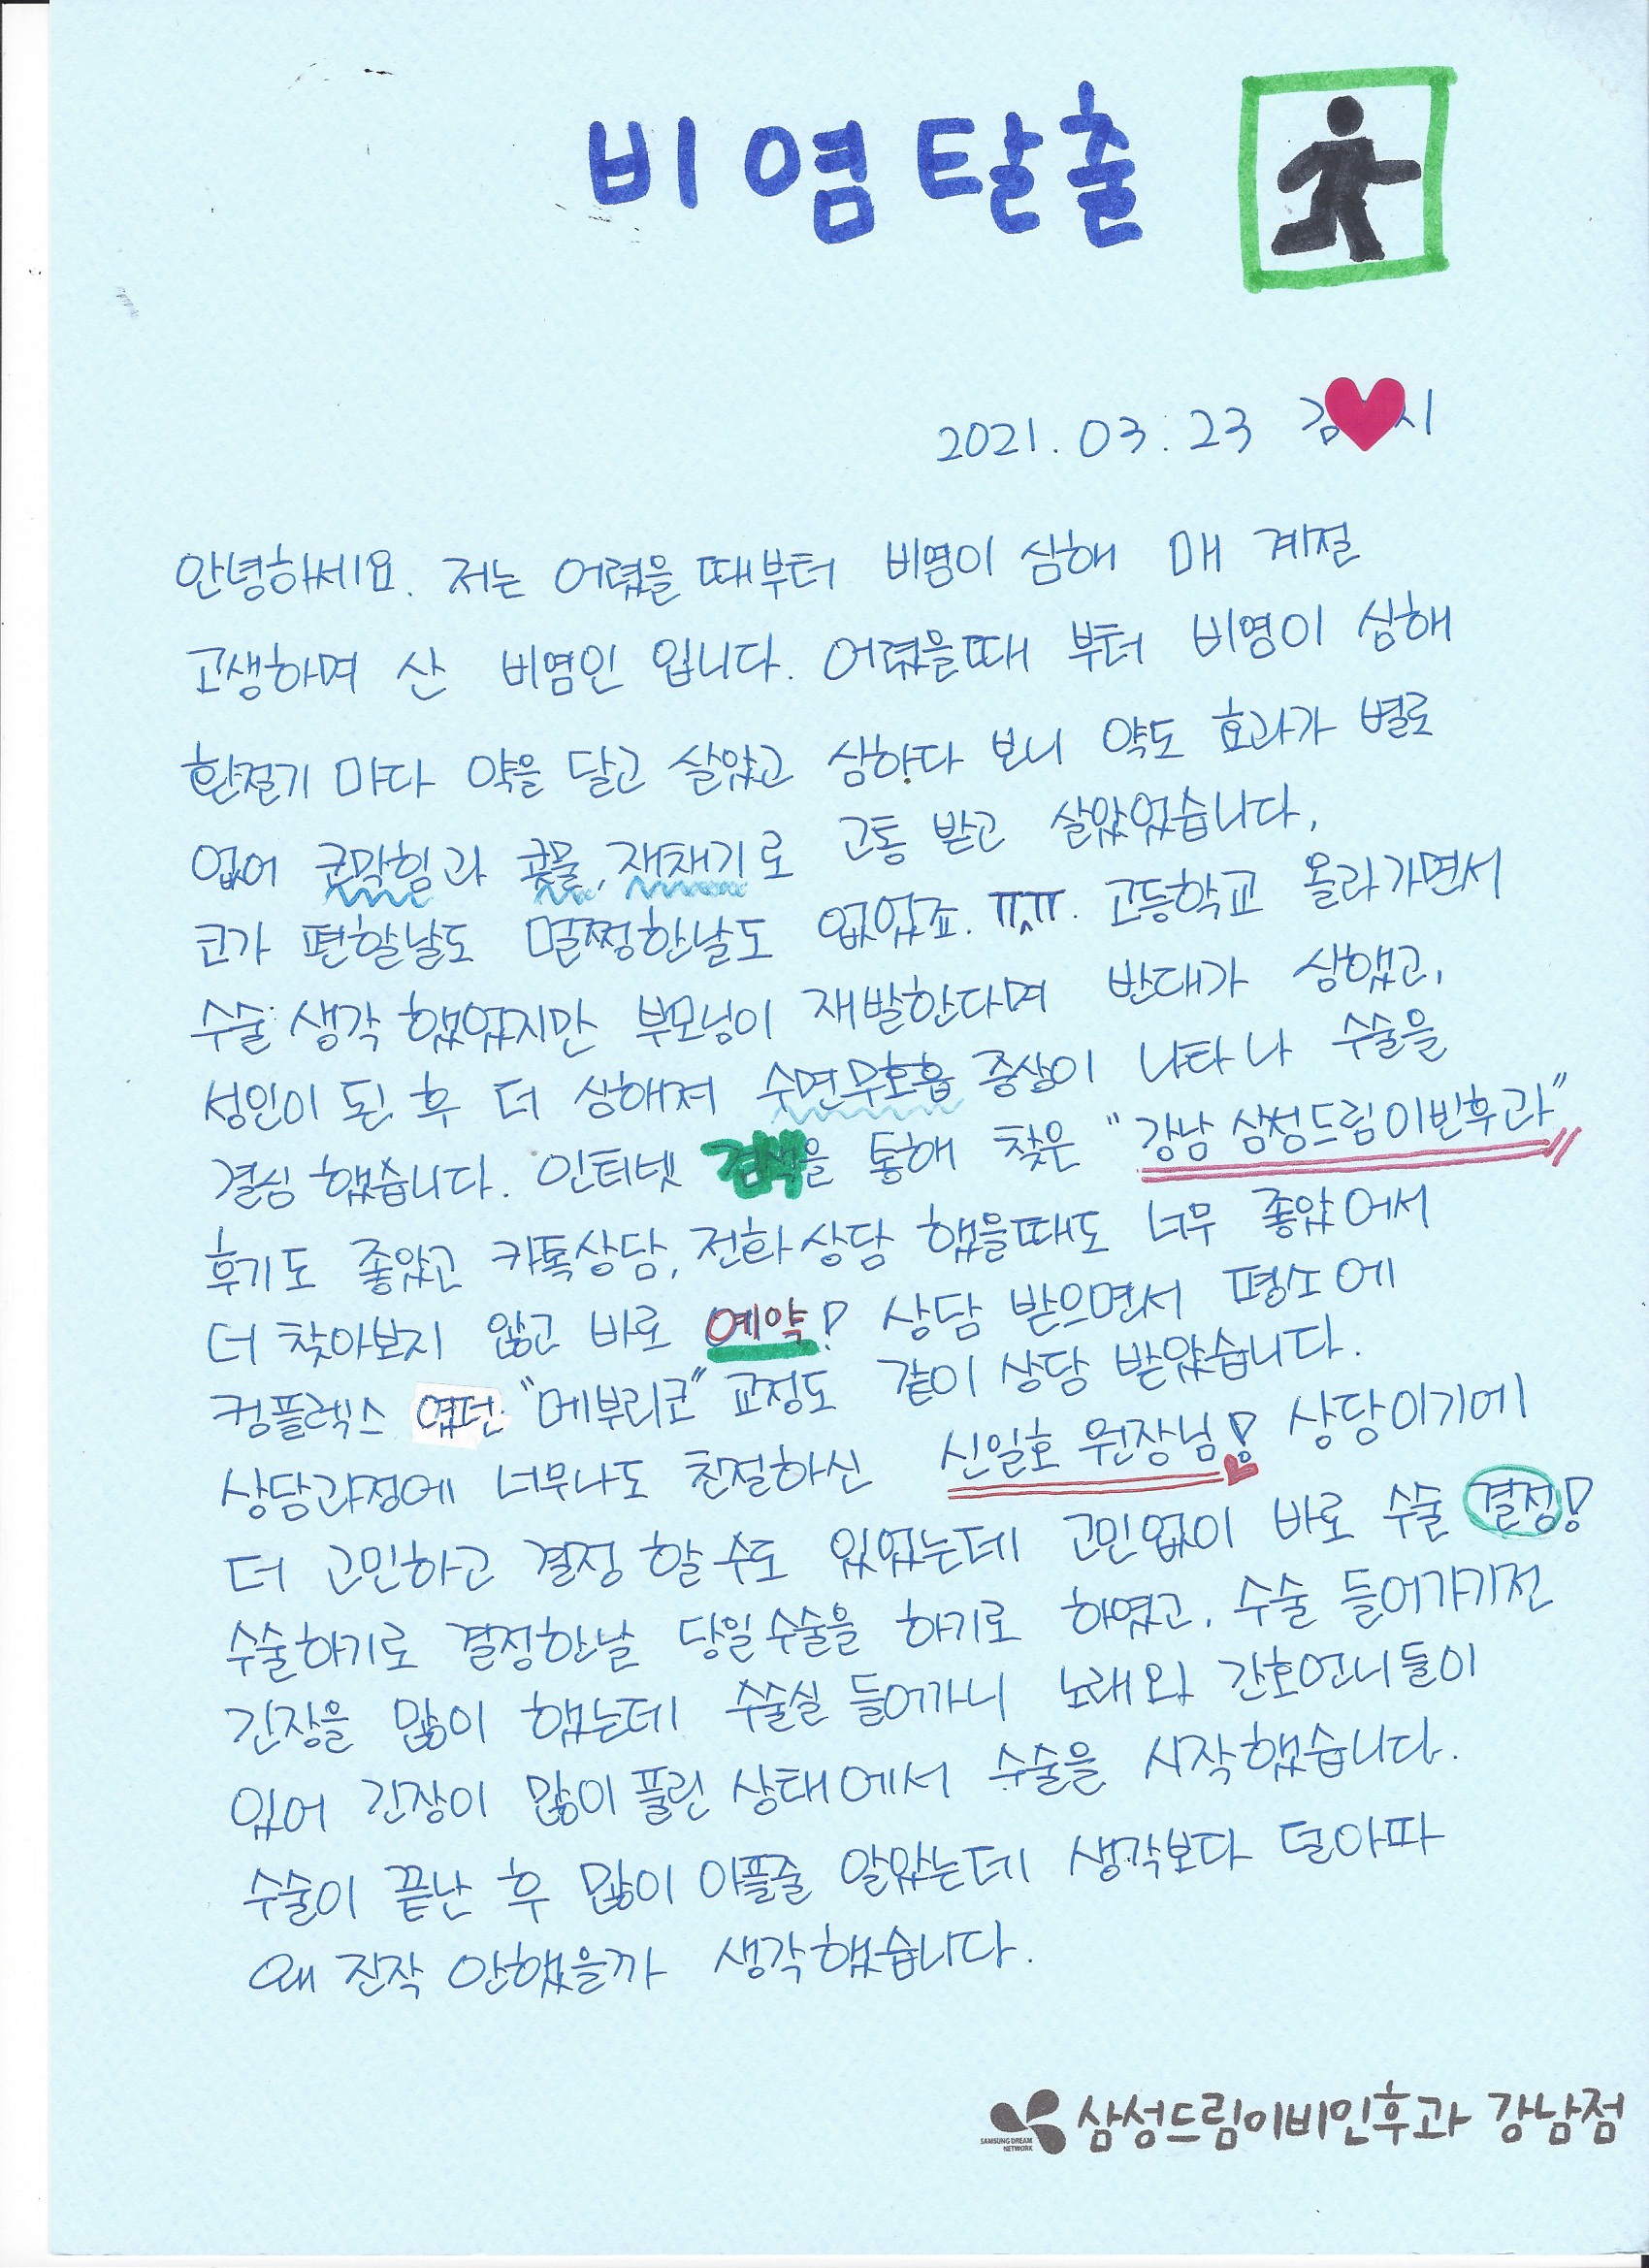 비염탈출
2021.03.23 김 시
안녕하세요. 저는 어렸을때부터 비염이 심해 매 계절
고생하며 산 비염인 입니다. 어렸을때 부터 비염이 심해
환절기 마다 약을 달고 살았고 심하다 보니 약도 효과가 별로
없어 코막힘과 콧물, 재채기로 고통 받고 살았었습니다.
코가 편할날도 멀쩡한날도 없었죠. ㅠㅠ. 고등학교 올라가면서
수술 생각 했었지만 부모님이 재발한다며 반대가 심했고,
성인이 된 후 더 심해져 수면무호흡 증상이 나타나 수술을
결심 했습니다. 인터넷 검색을 통해 찾은 "강남 삼성드림이빈후과"
후기도 좋았고 카톡상담, 전화상담 했을때도 너무 좋았어서
더 찾아보지 않고 바로 예약! 상담 받으면서 평소에
컴플렉스 였던 "메부리코" 교정도 같이 상담 받았습니다.
상담과정에 너무나도 친절하신 신일호 원장님! 상담이기에
더 고민하고 결정 할 수도 있었는데 고민없이 바로 수술 결정!
수술하기로 결정한날 당일수술을 하기로 하였고, 수술 들어가기전
긴장을 많이 했는데 수술실 들어가니 노래와 간호언니들이
있어 긴장이 많이 풀린 상태에서 수술을 시작했습니다.
수술이 끝난 후 많이 아플줄 알았는데 생각보다 덜아파
왜 진작 안했을까 생각했습니다.
SAMSUNG DREAM NETWORK 삼성드림이비인후과 강남점